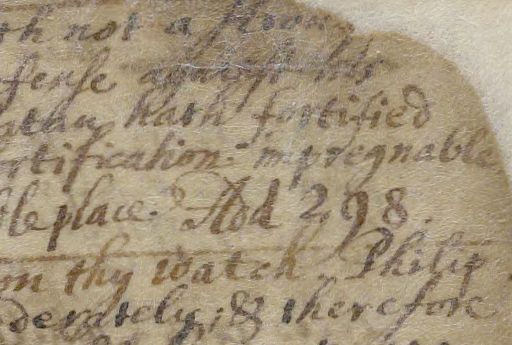 th not a strong
fense against his
atan hath fortified
rtification impregnable
ble place. Add 298.
on thy watch. Philip
derately, & therefore